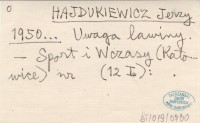 0
HAJDUKIEWICZ Jerzy
1950... Uwaga lawiny.
– Sport i Wczasy (Kato-
wice) nr (12 I): .